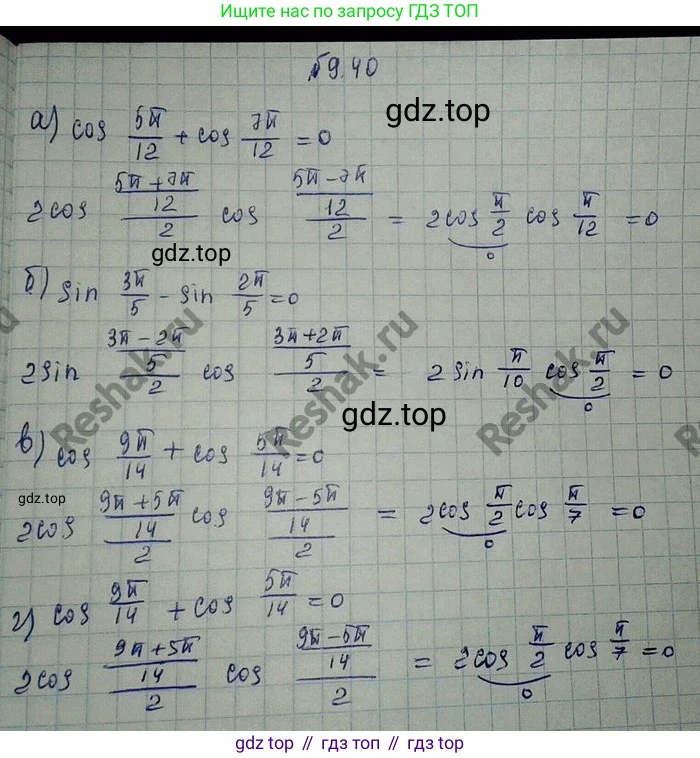 Ищите нас по запросу ГДЗ ТОП
г9.40
gdz.top
а) cos 5π/12 + cos 7π/12 = 0
2cos ((5π+7π)/12)/2 cos ((5π-7π)/12)/2 = 2cos π/2 cos π/12 = 0
0
gdz.top
б) sin 3π/5 - sin 2π/5 = 0
2sin ((3π-2π)/5)/2 cos ((3π+2π)/5)/2 = 2 sin π/10 cos π/2 = 0
0
Reshak.ru
Reshak.ru
Reshak.ru
gdz.top
в) cos 9π/14 + cos 5π/14 = 0
gdz.top
2cos ((9π+5π)/14)/2 cos ((9π-5π)/14)/2 = 2cos π/2 cos π/7 = 0
0
г) cos 9π/14 + cos 5π/14 = 0
2cos ((9π+5π)/14)/2 cos ((9π-5π)/14)/2 = 2cos π/2 cos π/7 = 0
0
gdz топ // гдз топ // gdz.top